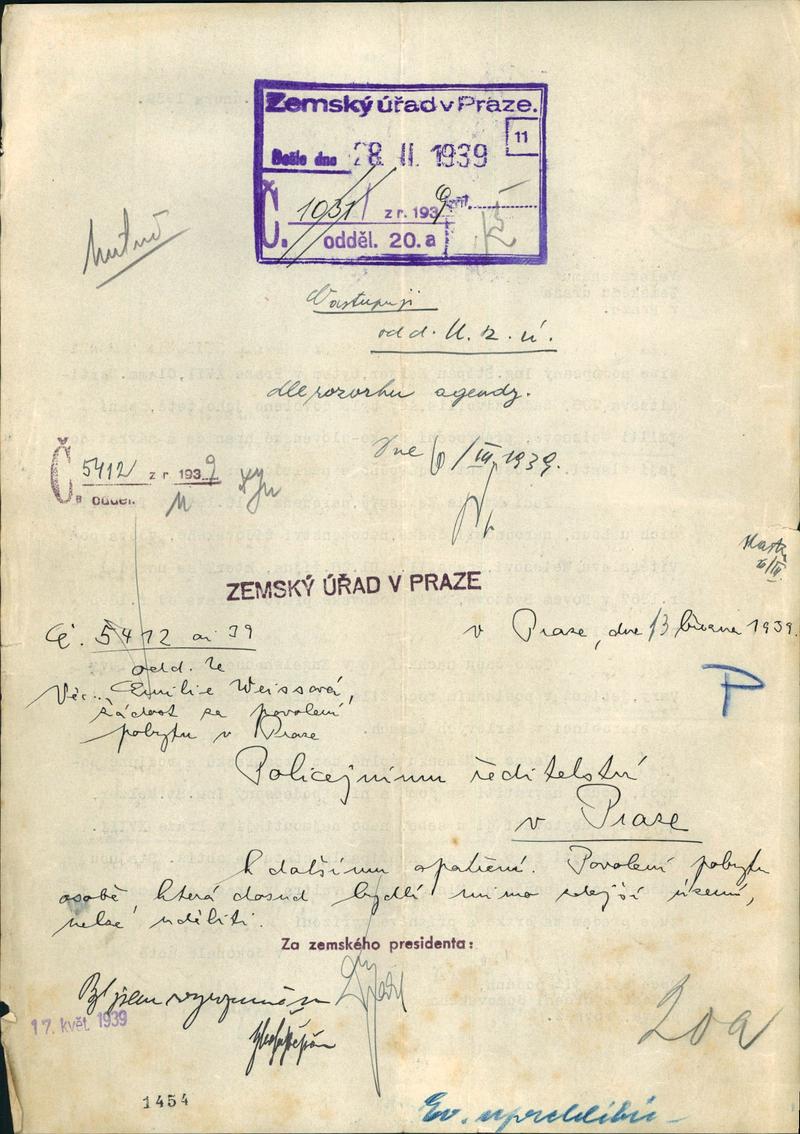 Zemský úřad v Praze.
Došlo dne 28. II. 1939
11
Č. 1031 z r. 1939
odděl. 20.a
nutné
odd. U. z. ú.
dle rozvrhu agendy.
Dne 6/III. 1939.
Č. 5412 z r. 1939
odděl.
26/III.
ZEMSKÝ ÚŘAD V PRAZE
Čj. 5412 ai 39
v Praze, dne 13 března 1939.
odd.
P
Věc: Emilie Weissová,
žádost za povolení
pobytu v Praze
Policejnímu ředitelství
v Praze
k dalšímu opatření. Povolení pobytu
osobě, která dosud bydlí mimo zdejší území,
nelze uděliti.
Za zemského presidenta:
Byl jsem vyrozuměn
17. květ. 1939
20a
1454
Ev.